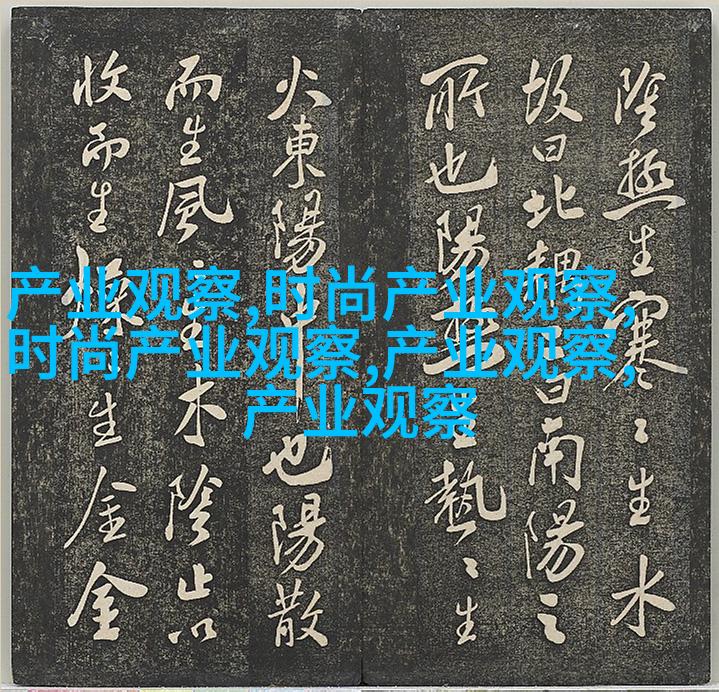 陰極生寒〻生水
故曰北曰南陽之
所也陽生熱〻生
火東陽中也陽散
而生風〻生木陰止以
收而生燥〻生金金
产业观察,时尚产业观察,
时尚产业观察,产业观察,
产业观察